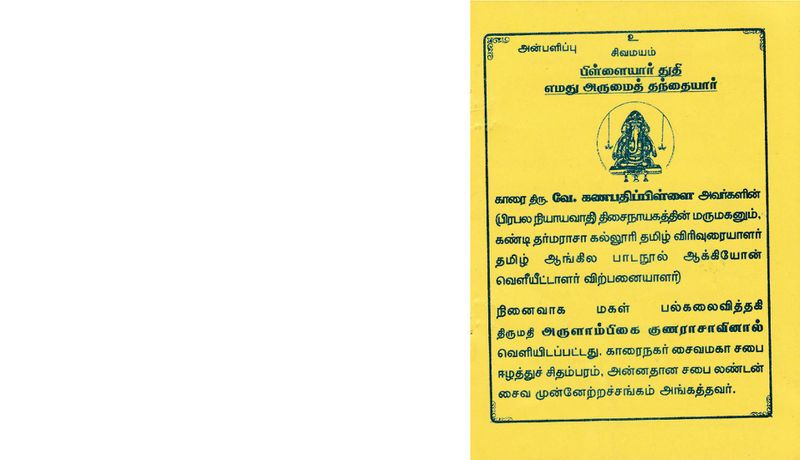 உ
அன்பளிப்பு
சிவமயம்
பிள்ளையார் துதி
எமது அருமைத் தந்தையார்
காரை திரு. வே. கணபதிப்பிள்ளை அவர்களின்
(பிரபல நியாயவாதி) திசைநாயகத்தின் மருமகனும்,
கண்டி தர்மராசா கல்லூரி தமிழ் விரிவுரையாளர்
தமிழ் ஆங்கில பாடநூல் ஆக்கியோன்
வெளியீட்டாளர் விற்பனையாளர்)
நினைவாக மகள் பல்கலைவித்தகி
திருமதி அருளாம்பிகை குணராசாவினால்
வெளியிடப்பட்டது. காரைநகர் சைவமகா சபை
ஈழத்துச் சிதம்பரம், அன்னதான சபை லண்டன்
சைவ முன்னேற்றச்சங்கம் அங்கத்தவர்.